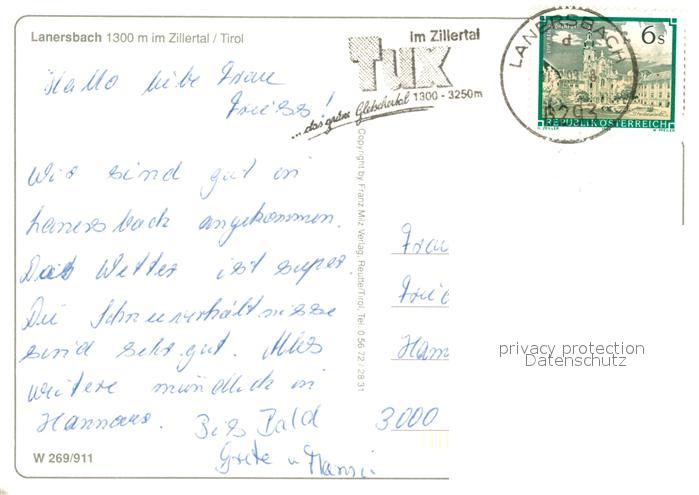 Lanersbach 1300 m im Zillertal / Tirol
Hallo liebe Frau
Friess!
Wir sind gut in
Lanersbach angekommen.
Das Wetter ist super.
Die Schneeverhältnisse
sind sehr gut. Alles
weitere mündlich in
Hannover. Bis Bald
Grete u
W 269/911
Tux im Zillertal
...das grüne Gletschertal 1300 - 3250m
LANERSBACH
6s
REPUBLIK ÖSTERREICH
Copyright by Franz Milz Verlag, Reutte/Tirol, Tel. 0 56 72 / 28 31
Frau
Frie
Hann
3000
privacy protection
Datenschutz